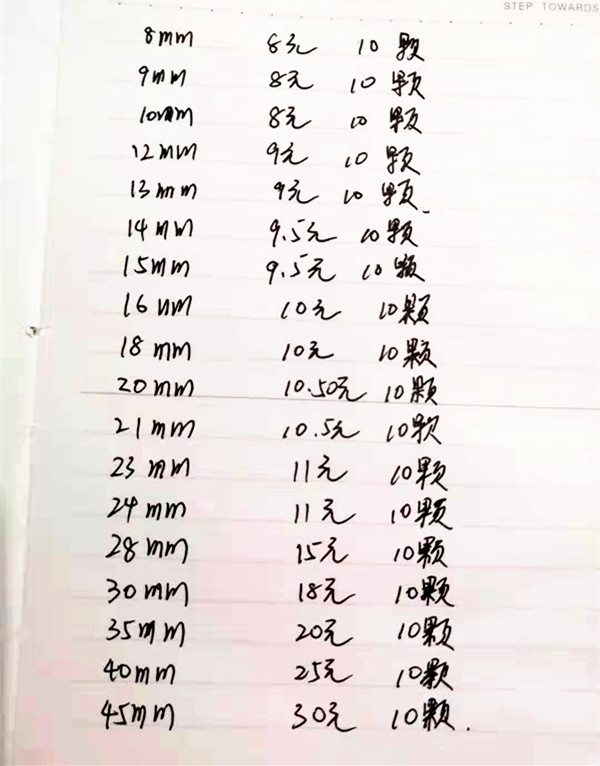 STEP TOWARDS
8mm 8元 10颗
9mm 8元 10颗
10mm 8元 10颗
12mm 9元 10颗
13mm 9元 10颗.
14mm 9.5元 10颗
15mm 9.5元 10颗
16mm 10元 10颗
18mm 10元 10颗
20mm 10.50元 10颗
21mm 10.5元 10颗
23mm 11元 10颗
24mm 11元 10颗
28mm 15元 10颗
30mm 18元 10颗
35mm 20元 10颗
40mm 25元 10颗
45mm 30元 10颗.